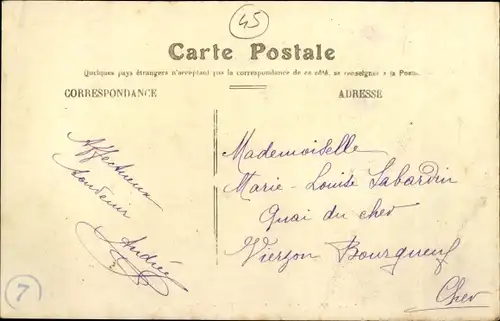 45
Carte Postale
Quelques pays étrangers n'acceptant pas la correspondance de ce côté, se renseigner à la Poste.
CORRESPONDANCE
ADRESSE
Affectueux
Souvenir
Andrée
Mademoiselle
Marie-Louise Sabardin
Quai du cher
Vierzon Bourgneuf
Cher
7